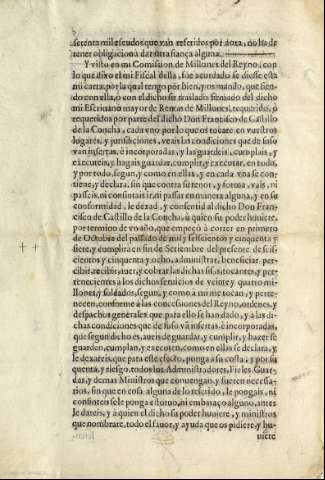 setenta mil escudos que van referidos por dota, no ha de
tener obligacion à dar otra fiança alguna.
Y visto en mi Comission de Millones del Reyno, con
lo que dixo el mi Fiscal della, fue acordado se diesse esta
mi carta, por la qual tengo por bien, y os mando, que sien-
do con ella, ò con el dicho su traslado signado del dicho
mi Escrivano mayor de Rentas de Millones, requeridos, ò
requeridos por parte del dicho Don Francisco de Castillo
de la Concha, cada vno por lo que os tocare en vuestros
lugares, y jurisdiciones, veais las condiciones que de suso
van insertas, è incorporadas, y las guardeis, cumplais, y
executeis, y hagais guardar, cumplir, y executar, en todo,
y por todo, segun, y como en ellas, y en cada vna se con-
tiene, y declara, sin que contra su tenor, y forma, vais, ni
passeis, ni consintais ir, ni passar en manera alguna, y en su
conformidad, le dexad, y consentid al dicho Don Fran-
cisco de Castillo de la Concha, ù quien su poder huviere,
por termino de vn año, que empeçò à correr en primero
de Octubre del passado de mil y seiscientos y cinquenta y
siete, y cumplirà en fin de Setiembre del presente de seis-
cientos y cinquenta y ocho, administrar, beneficiar, per-
cibir, recibir, auer, y cobrar las dichas sisas, tocantes, y per-
tenecientes à los dichos seruicios de veinte y quatro mi-
llones, y soldados, segun, y como à mi me tocan, y perte-
necen, conforme à las concesiones del Reyno, ordenes, y
despachos generales que para ello se han dado, y à las di-
chas condiciones que de suso và insertas, è incorporadas,
que segun dicho es, aueis de guardar, y cumplir, y hazer se
guarden, cumplan, y executen, como en ellas se declara, y
le dexareis, que para este efecto, ponga à su costa, y por su
cuenta, y riesgo, todos los Administradores, Fieles, Guar-
das, y demas Ministros que conuengan, y fueren necessa-
rios, sin que en cosa alguna de lo referido, le pongais, ni
consintais se le ponga estoruo, ni embaraço alguno, antes
le dareis, y à quien el dicho su poder huuiere, y ministros
que nombrare, todo el fauor, y ayuda que os pidiere, y hu-
uiere